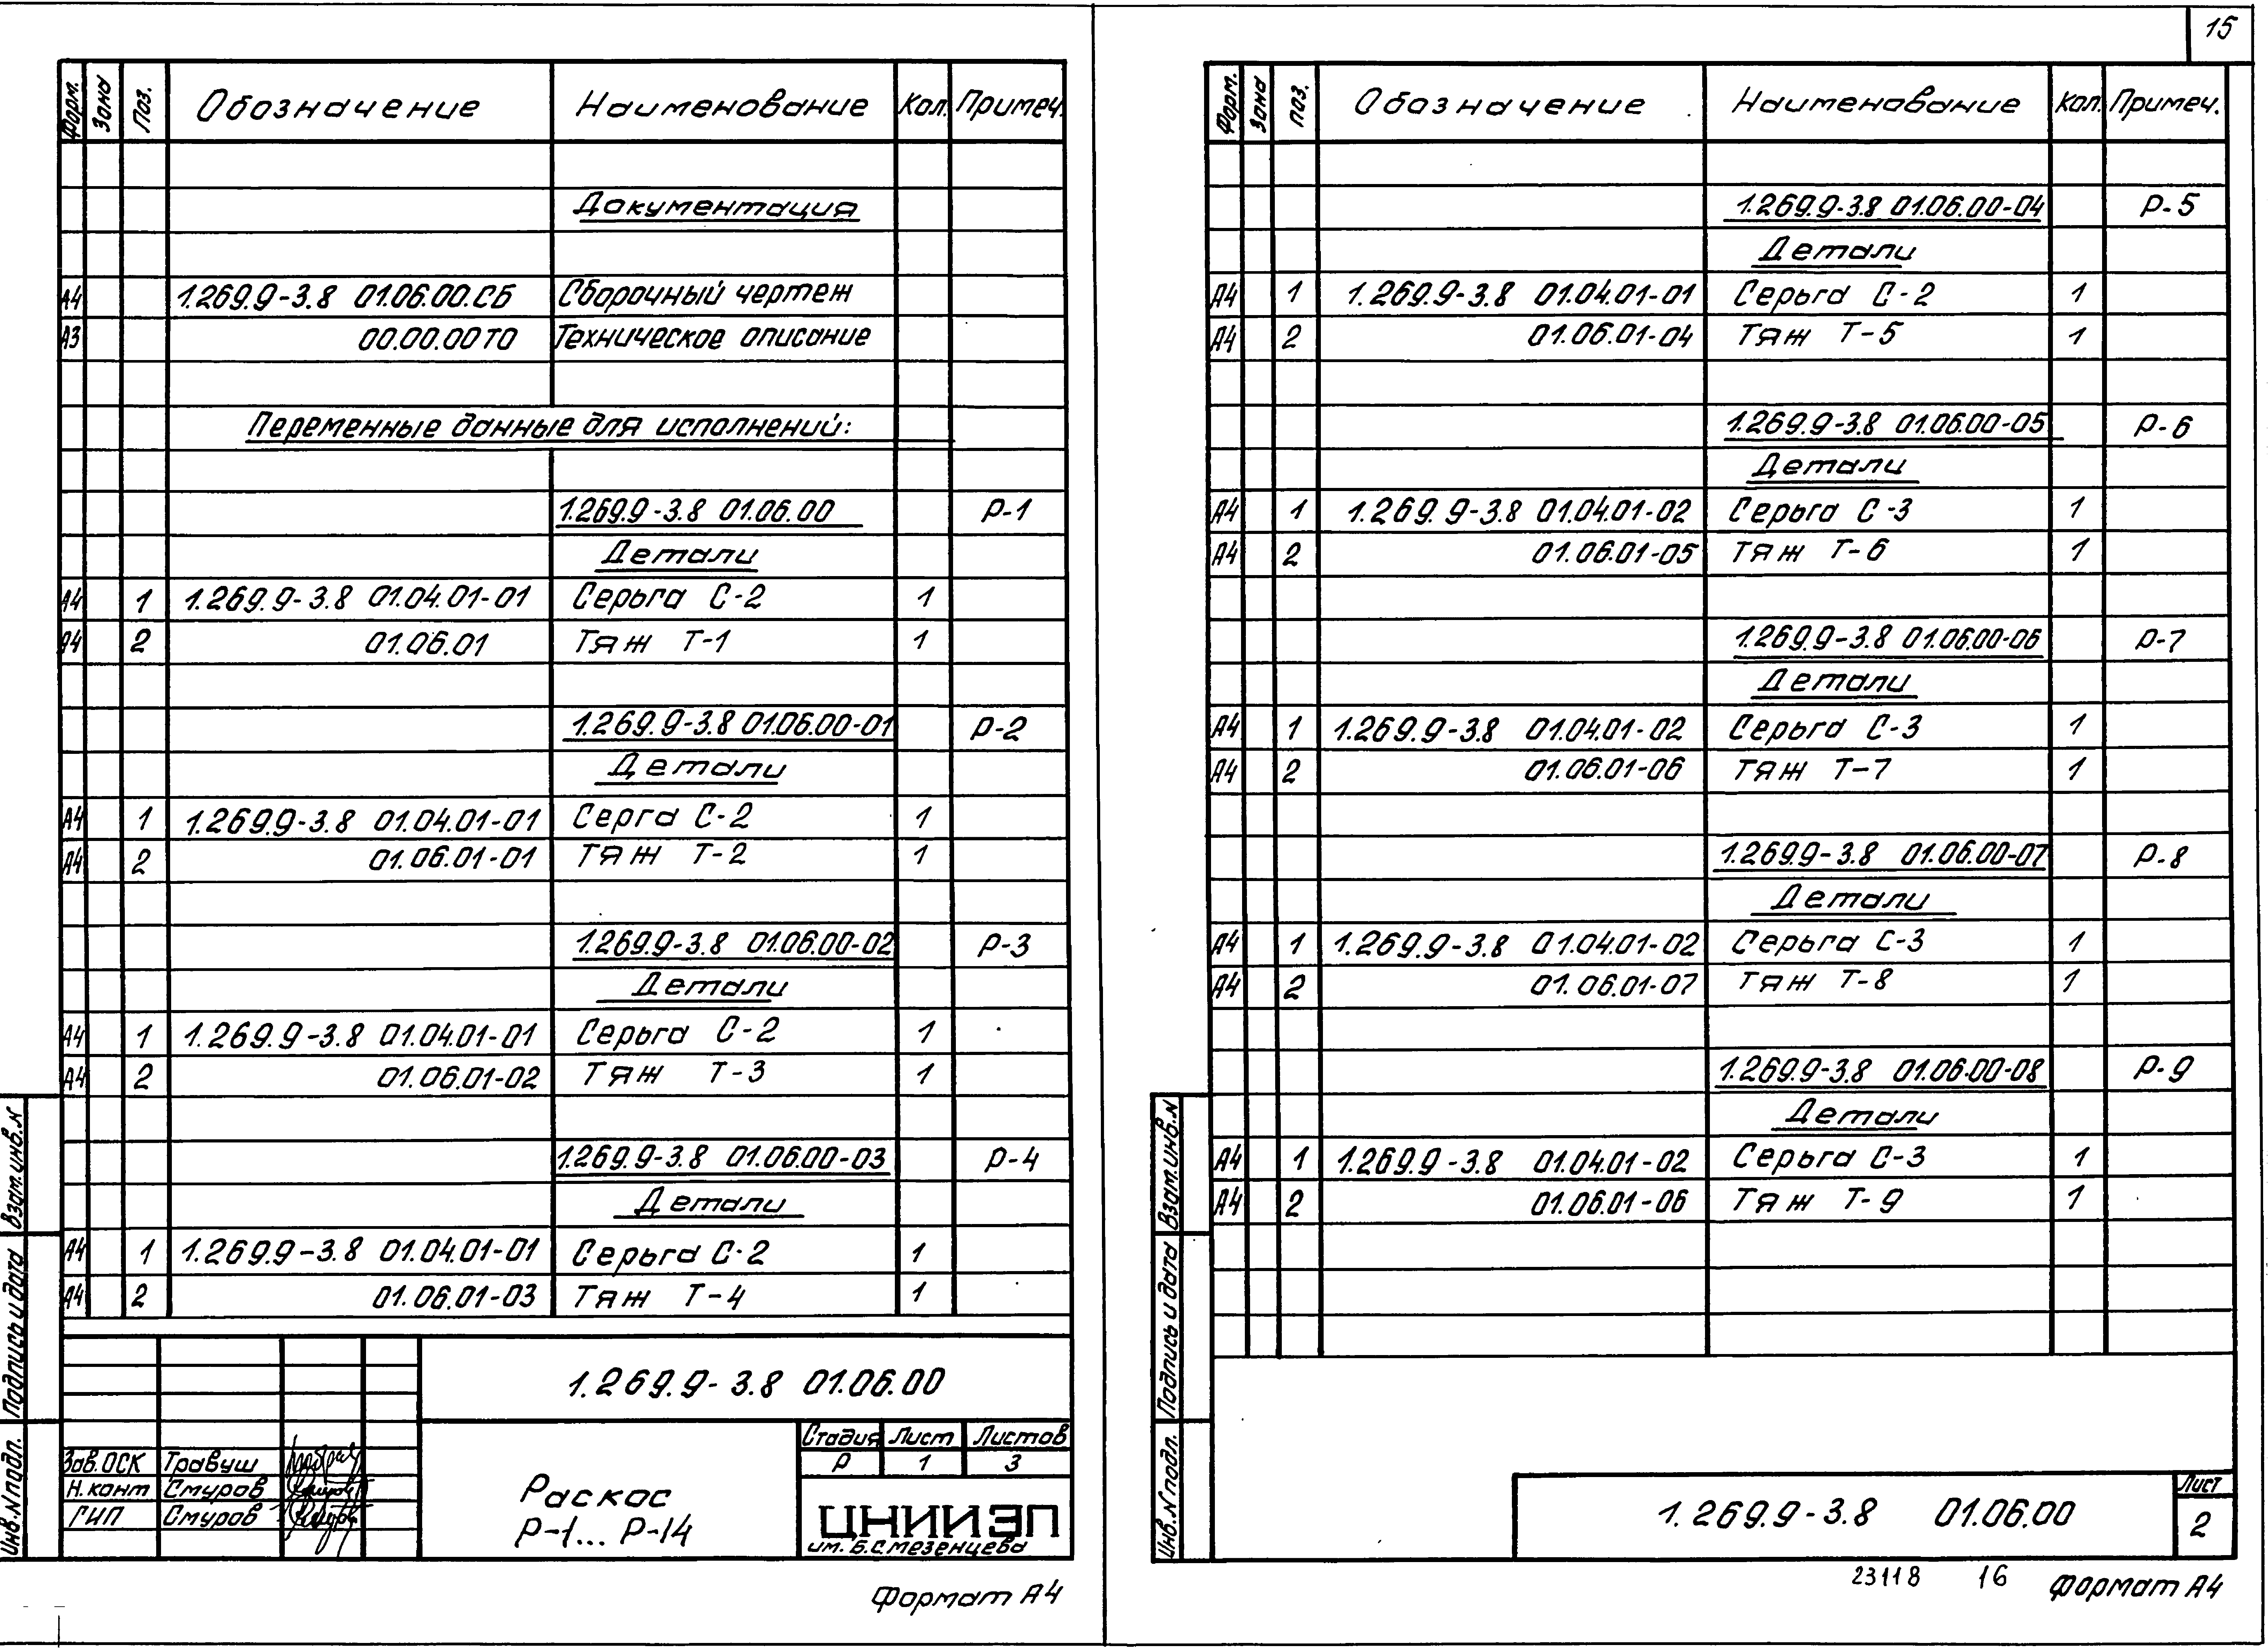 15
Форм. Зона Поз. Обозначение Наименование Кол. Примеч.
Документация
А4 1.269.9-3.8 01.06.00.СБ Сборочный чертеж
А3 00.00.00ТО Техническое описание
Переменные данные для исполнений:
1.269.9-3.8 01.06.00 Р-1
Детали
А4 1 1.269.9-3.8 01.04.01-01 Серьга С-2 1
А4 2 01.06.01 Тяж Т-1 1
1.269.9-3.8 01.06.00-01 Р-2
Детали
А4 1 1.269.9-3.8 01.04.01-01 Серга С-2 1
А4 2 01.06.01-01 Тяж Т-2 1
1.269.9-3.8 01.06.00-02 Р-3
Детали
А4 1 1.269.9-3.8 01.04.01-01 Серьга С-2 1
А4 2 01.06.01-02 Тяж Т-3 1
1.269.9-3.8 01.06.00-03 Р-4
Детали
А4 1 1.269.9-3.8 01.04.01-01 Серьга С-2 1
А4 2 01.06.01-03 Тяж Т-4 1
Взам.инв.N
Подпись и дата
Инв.N подл.
1.269.9-3.8 01.06.00
Зав.ОСК Травуш
Н.конт Смуров
ГИП Смуров
Раскос
Р-1... Р-14
Стадия Лист Листов
Р 1 3
ЦНИИЭП
им. Б.С.Мезенцева
Формат А4
Форм. Зона Поз. Обозначение Наименование Кол. Примеч.
1.269.9-3.8 01.06.00-04 Р-5
Детали
А4 1 1.269.9-3.8 01.04.01-01 Серьга С-2 1
А4 2 01.06.01-04 Тяж Т-5 1
1.269.9-3.8 01.06.00-05 Р-6
Детали
А4 1 1.269.9-3.8 01.04.01-02 Серьга С-3 1
А4 2 01.06.01-05 Тяж Т-6 1
1.269.9-3.8 01.06.00-06 Р-7
Детали
А4 1 1.269.9-3.8 01.04.01-02 Серьга С-3 1
А4 2 01.06.01-06 Тяж Т-7 1
1.269.9-3.8 01.06.00-07 Р-8
Детали
А4 1 1.269.9-3.8 01.04.01-02 Серьга С-3 1
А4 2 01.06.01-07 Тяж Т-8 1
1.269.9-3.8 01.06.00-08 Р-9
Детали
А4 1 1.269.9-3.8 01.04.01-02 Серьга С-3 1
А4 2 01.06.01-06 Тяж Т-9 1
Взам.инв.N
Подпись и дата
Инв.N подл.
1.269.9-3.8 01.06.00
Лист
2
23118 16 Формат А4